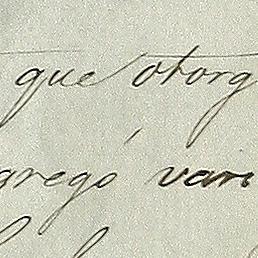 que otorg
aregó vari